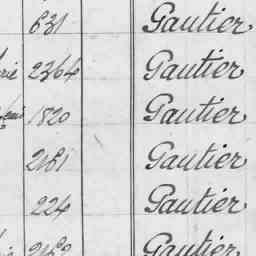 631 Gautier
2364 Gautier
1520 Gautier
2181 Gautier
224 Gautier
2162 Gautier